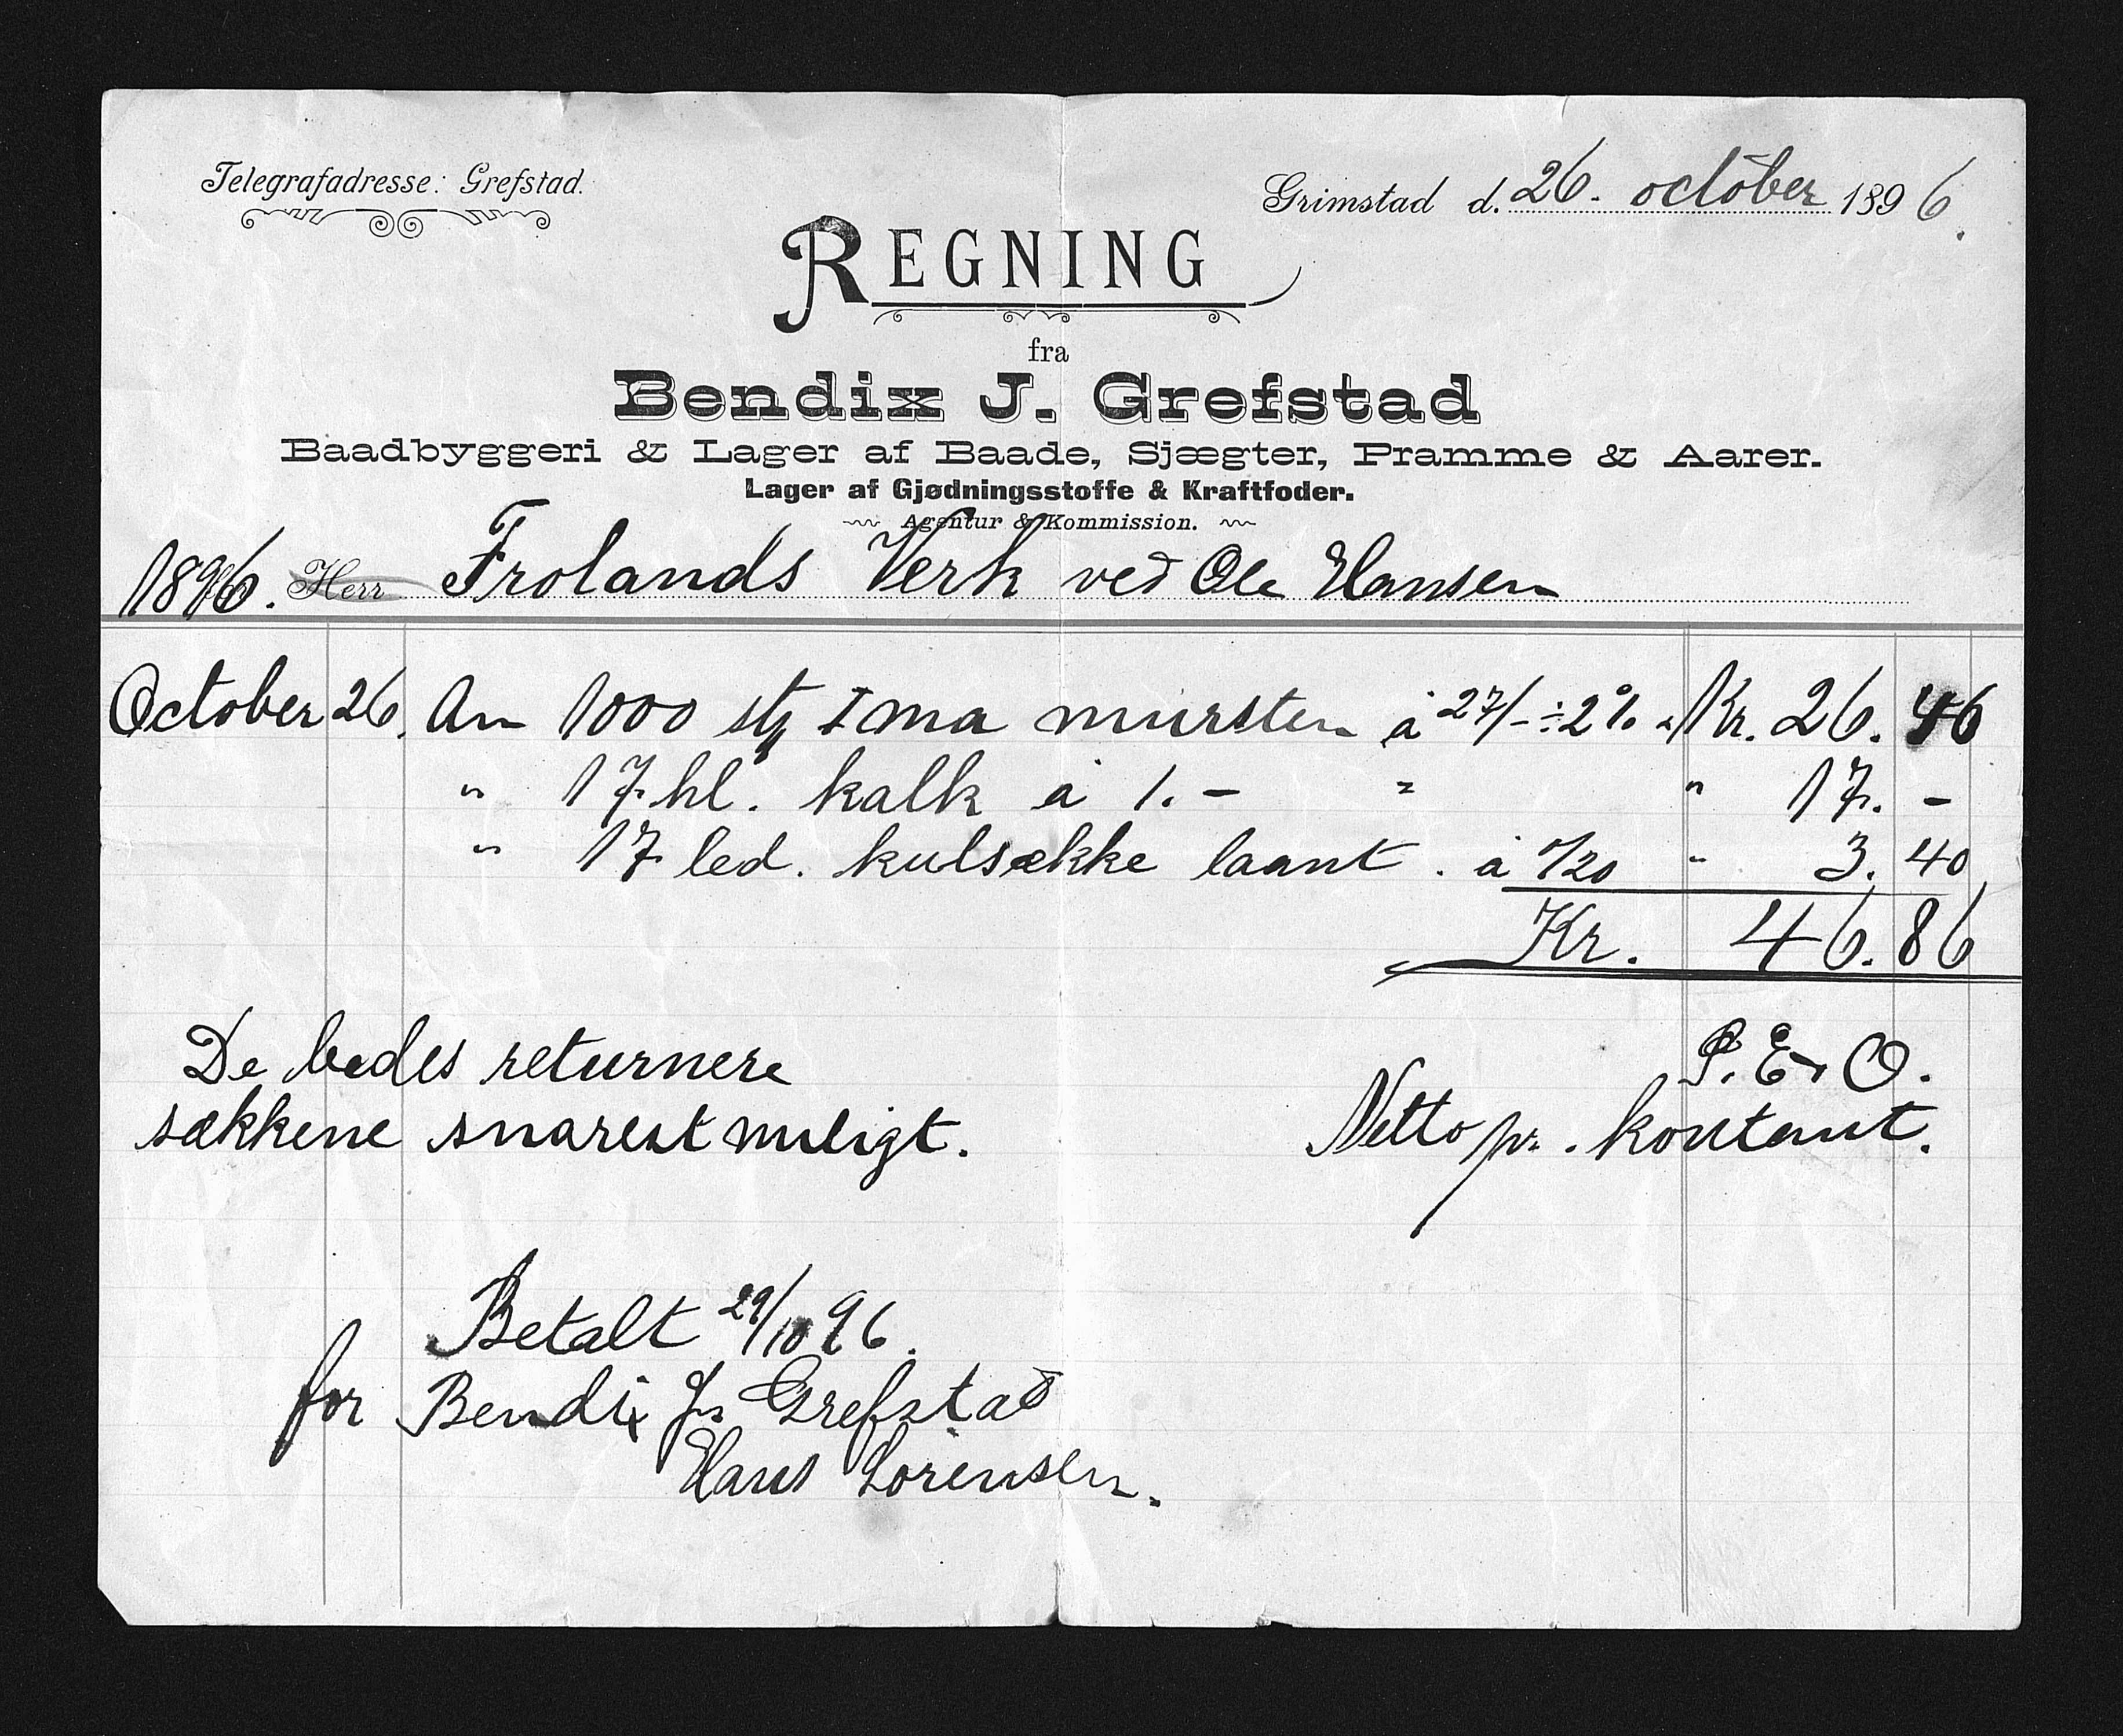 Telegrafadresse: Grefstad.
Grimstad d. 26. october 1896.
REGNING
fra
Bendix J. Grefstad
Baadbyggeri & Lager af Baade, Sjægter, Pramme & Aarer.
Lager af Gjødningsstoffe & Kraftfoder.
Agentur & Kommission.
1896. Herr Frolands Verk ved Ole Hansen
October 26. An 1000 stk Ima mursten à 27/- ÷ 2% " Kr. 26. 46
" 17 hl. kalk à 1.- " " 17. -
" 17 led. kulsække laant. à -/20 " 3. 40
Kr. 46.86
De bedes returnere
sækkene snarest muligt.
S. E. & O.
Netto pr. kontant.
Betalt 29/10 96.
for Bendix Js Grefstad
Hans Lorensen.